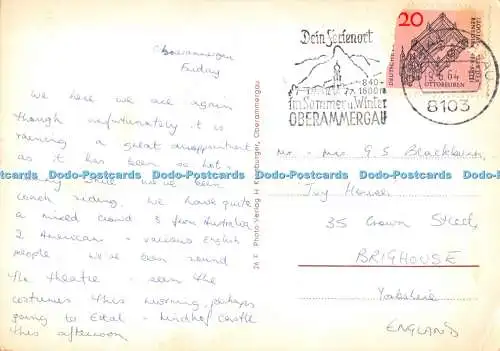 Oberammergau
Friday
Well here we are again
though unfortunately it is
raining a great disappointment
as it has been so hot
while we've been
coach riding. We have quite
a mixed crowd 3 from Australia
2 Americans - various English
people we've been round
the theatre - seen the
costumes this morning, perhaps
going to Ettal - Lindhof Castle
this afternoon
26 F Photo-Verlag H. Kronburger, Oberammergau
Dein Ferienort
840-
1600m
im Sommer u. Winter
OBERAMMERGAU
20
OTTOBEUREN
64
8103
Mr. Mrs G S Blackburn
Ivy House
35 Crown Street
BRIGHOUSE
Yorkshire
ENGLAND
Debs-Postcards www.Debs-Postcards.co.uk